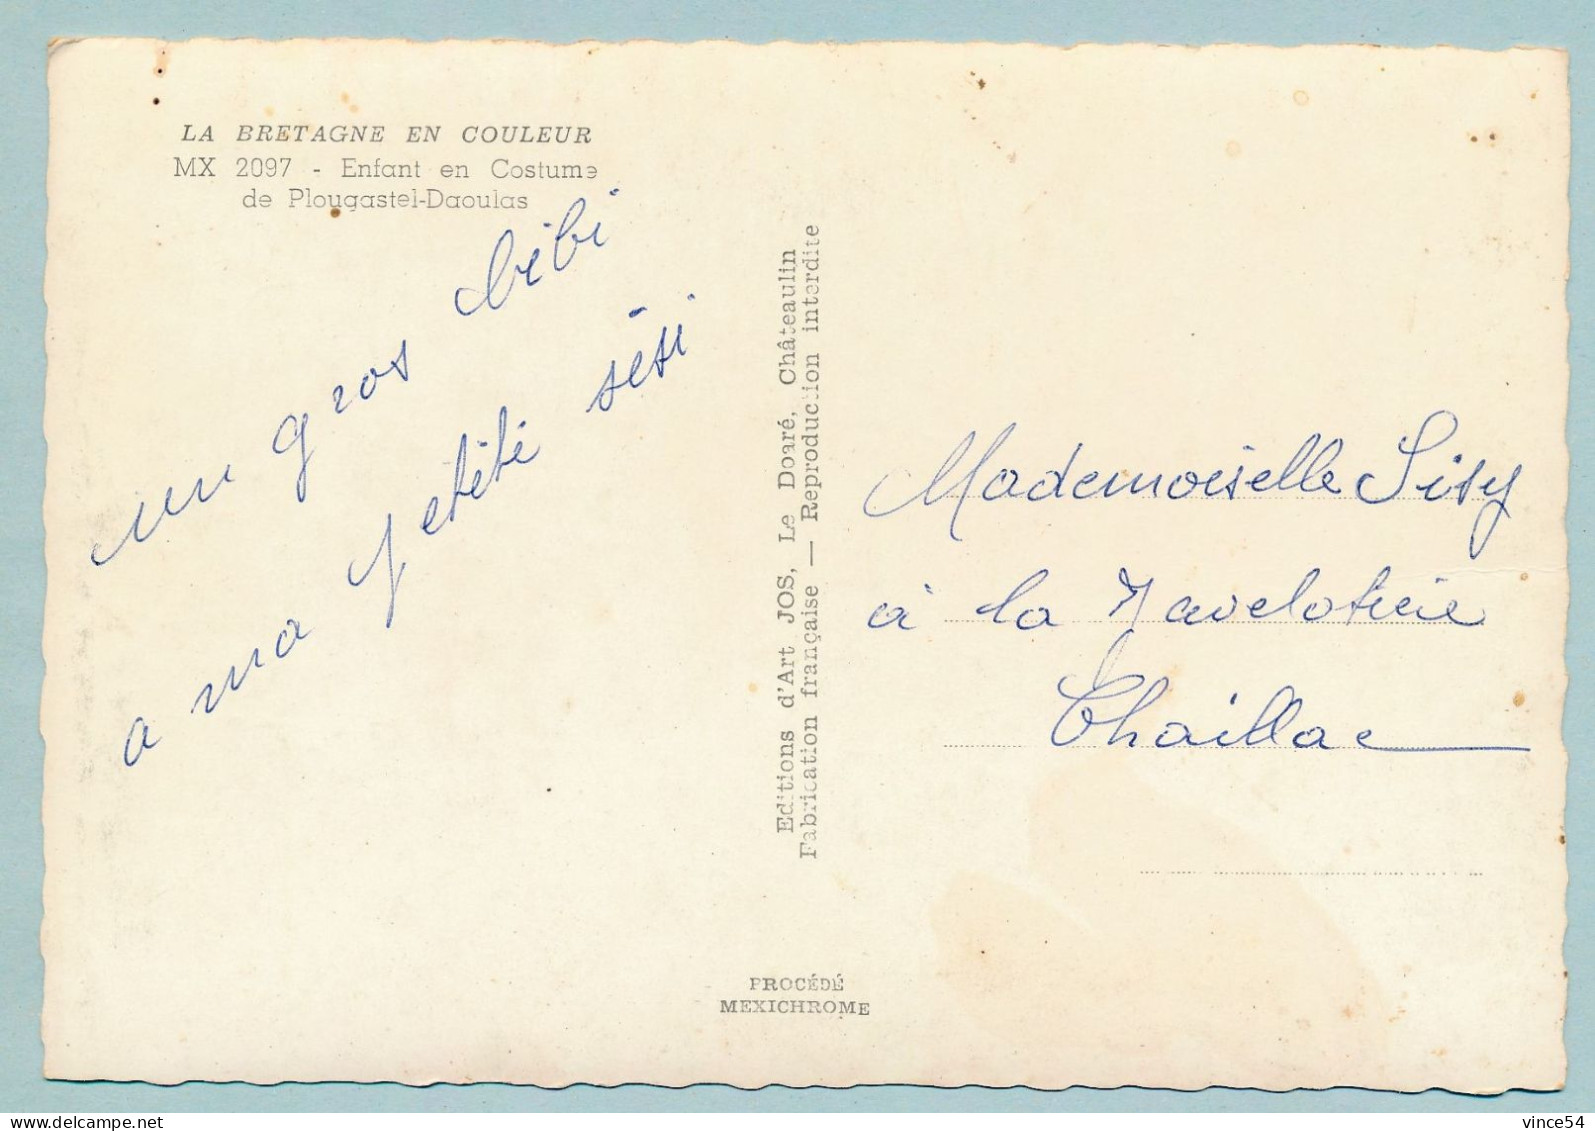 LA BRETAGNE EN COULEUR
MX 2097 - Enfant en Costume
de Plougastel-Daoulas
un gros bébi
a ma petité sési
Editions d'Art JOS, Le Doaré, Châteaulin
Fabrication française — Reproduction interdite
Mademoiselle Sisy
à la
Chaillac
PROCÉDÉ
MEXICHROME
vince54